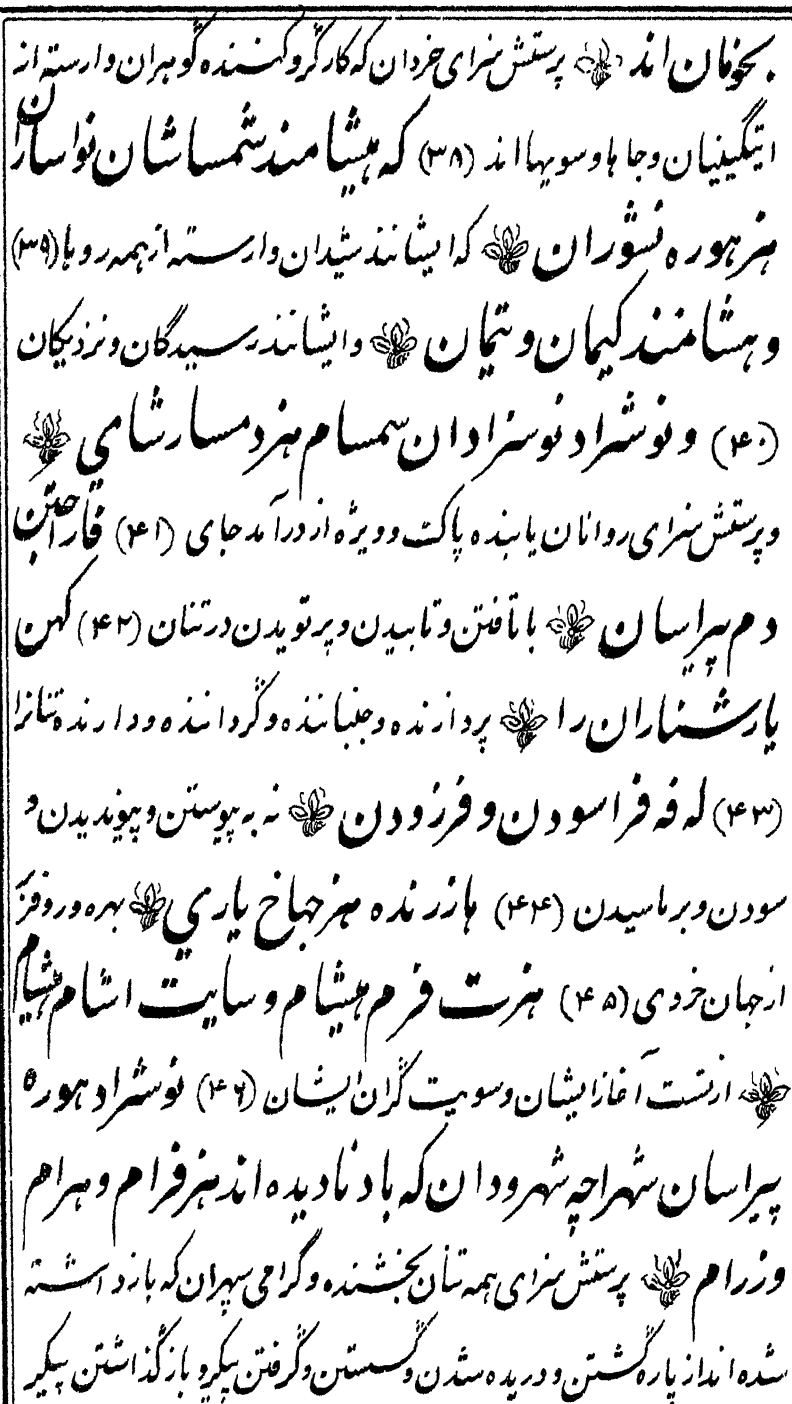 بخومان اند پرستش سزای خردان که کارگر و کننده گوهران وارسته از
ایتگینیان و جاها و سویها اند (۳۸) که هیشامند شمساشان نواساران
هز هوره نسوران که ایشانند شیدان وارسته از همه روها (۳۹)
و هشامند کیمان و تیمان و ایشانند رسیدگان و نزدیکان
(۴۰) و نوشراد نوسزادان سمسام هزد مسار شامی
و پرستش سزای روانان یابنده پاک و ویژه از درآمد جای (۴۱) فاراجتن
دم پیراسان با تافتن و تابیدن و پرتویدن در تنان (۴۲) کهن
یارشناران را پردازنده و جنباننده و گرداننده و دارنده تنانرا
(۴۳) له فه فراسودن و فرزودن نه به پیوستن و پیوندیدن و
سودن و برماسیدن (۴۴) هازرنده هز جهاخ یاری بهره ور و فرّ
از جهان خردی (۴۵) هزت فرم هیشام و سایت اشام هشیام
از تست آغاز ایشان و سویت گران ایشان (۴۶) نوشراد هوره
پیراسان شهراچه شهرودان که باد نادیده اند هز فرام و هرام
و زرام پرستش سزای همه تنان بخشنده و گرامی سپهران که بازداشته
شده اند از پاره گشتن و دریده شدن و گسستن و گرفتن پیکر و باز گذاشتن پیکر